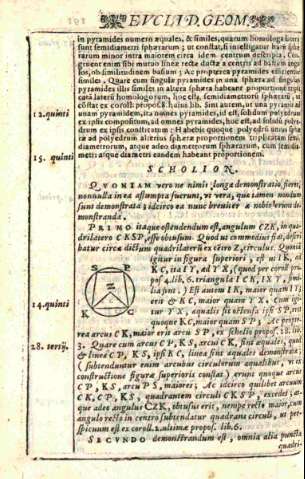 EVCLID. GEOM.
in pyramides numero æquales, & similes, quarum homologa latera
sunt semidiametri sphærarum; ut constat, si intelligatur hæc sphæ-
rarum minor intra maiorem circa idem centrum descripta. Con-
gruent enim sibi mutuo lineæ rectæ ductæ a centris ad basium angu-
los, ob similitudinem basium; Ac propterea pyramides efficientur
similes. Quare cum singulæ pyramides in una sphæra ad singulas
pyramides illis similes in altera sphæra habeant proportionem tripli-
catam laterū homologorum, hoc est, semidiametrorū sphærarū, ut
constat ex coroll. propos. 8. huius lib. Sint autem, ut una pyramis ad
12. quinti
unam pyramidem, ita omnes pyramides, id est, solidum polyedrum
ex ipsis compositum, ad omnes pyramides, hoc est, ad solidum poly-
edrum ex ipsis constitutum; Habebit quoque polyedrū unius sphæ-
ræ ad polyedrum alterius sphæræ proportionem triplicatam semi-
diametrorum, atque adeo diametrorum sphærarum, cum semidia-
15. quinti
metri atque diametri eandem habeant proportionem.
SCHOLION.
QVONIAM vero ne nimis longa demonstratio fieret,
nonnulla in ea assumpta fuerunt, ut vera, quæ tamen nondum
sunt demonstrata; idcirco ea nunc breviter a nobis erunt de-
monstranda.
PRIMO itaque ostendendum est, angulum CZK, in qua-
drilatero CKSP, esse obtusum. Quod ut commodius fiat, descri-
batur circa dictum quadrilaterū ex cētro Z, circulus. Quoniā
igitur in figura superiori, est ut IK, ad
KC, ita IY, ad YX, (quod per coroll. pro
pos. 4. lib. 6. triangula ICK, IXY,
S P
Z
K C
14. quinti
rea arcus CK, maior erit arcu SP, ex scholio propos. 28. lib.
28. tertij.
3. Quare cum arcus CP, KS, arcui CK, sint æquales, quod
& lineæ CP, KS, ipsi KC, lineæ sint æquales demonstratæ
(subtenduntur enim arcubus circulorum æqualibus, ut ex
constructione figuræ superioris constat) erunt quoque arcus
CP, KS, arcu PS, maiores; Ac idcirco quilibet arcuum
CK, CP, KS, quadrantem circuli CKSP, excedet; at-
que adeo angulus CZK, obtusus erit, nempe recto maior, cum
angulo recto in centro subtendatur quadrans circuli, ut per-
spicuum est ex coroll. 2. ultimæ propos. lib. 6.
SECVNDO demonstrandum est, omnia alia puncta